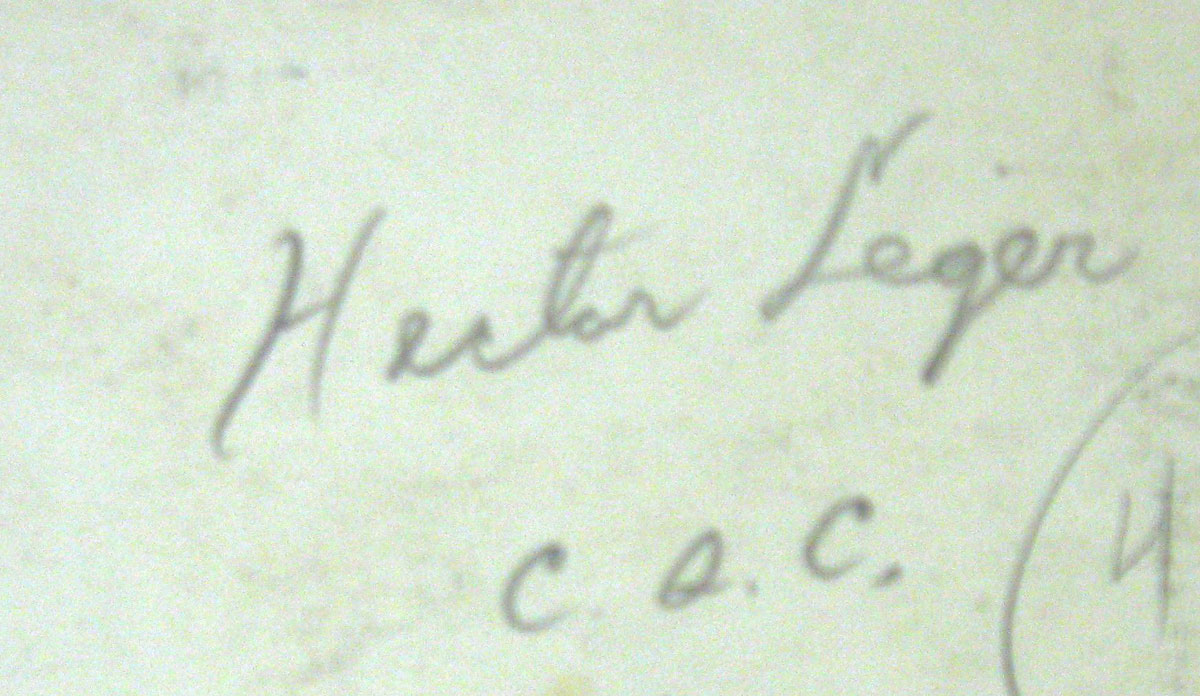 Hector Leger
C. A. C.
(4